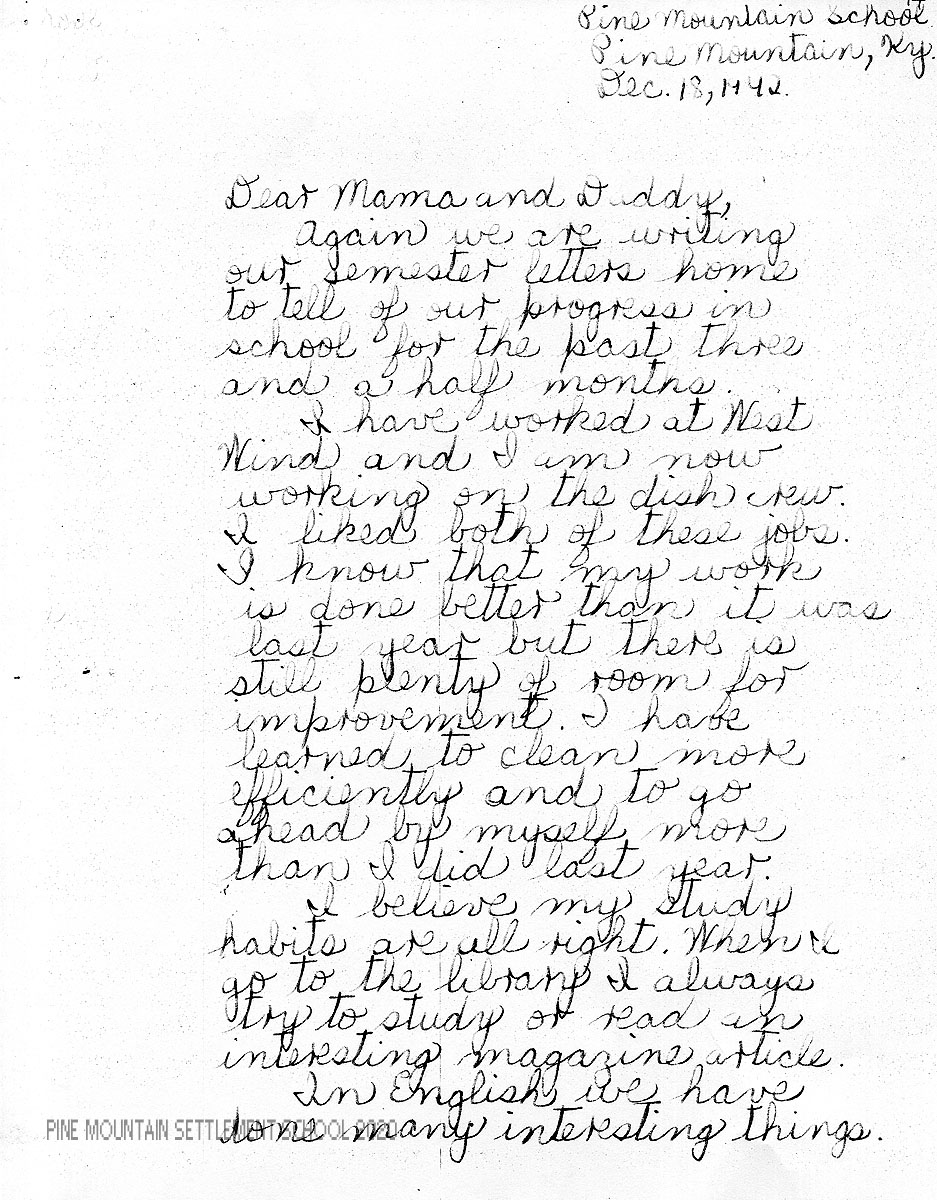 Pine Mountain School
Pine Mountain, Ky.
Dec. 18, 1942.
Dear Mama and Daddy,
Again we are writing
our semester letters home
to tell of our progress in
school for the past three
and a half months.
I have worked at West
Wind and I am now
working on the dish crew.
I liked both of these jobs.
I know that my work
is done better than it was
last year but there is
still plenty of room for
improvement. I have
learned to clean more
efficiently and to go
ahead by myself more
than I did last year.
I believe my study
habits are all right. When I
go to the library I always
try to study or read an
interesting magazine article.
In English we have
done many interesting things.
PINE MOUNTAIN SETTLEMENT SCHOOL 2020